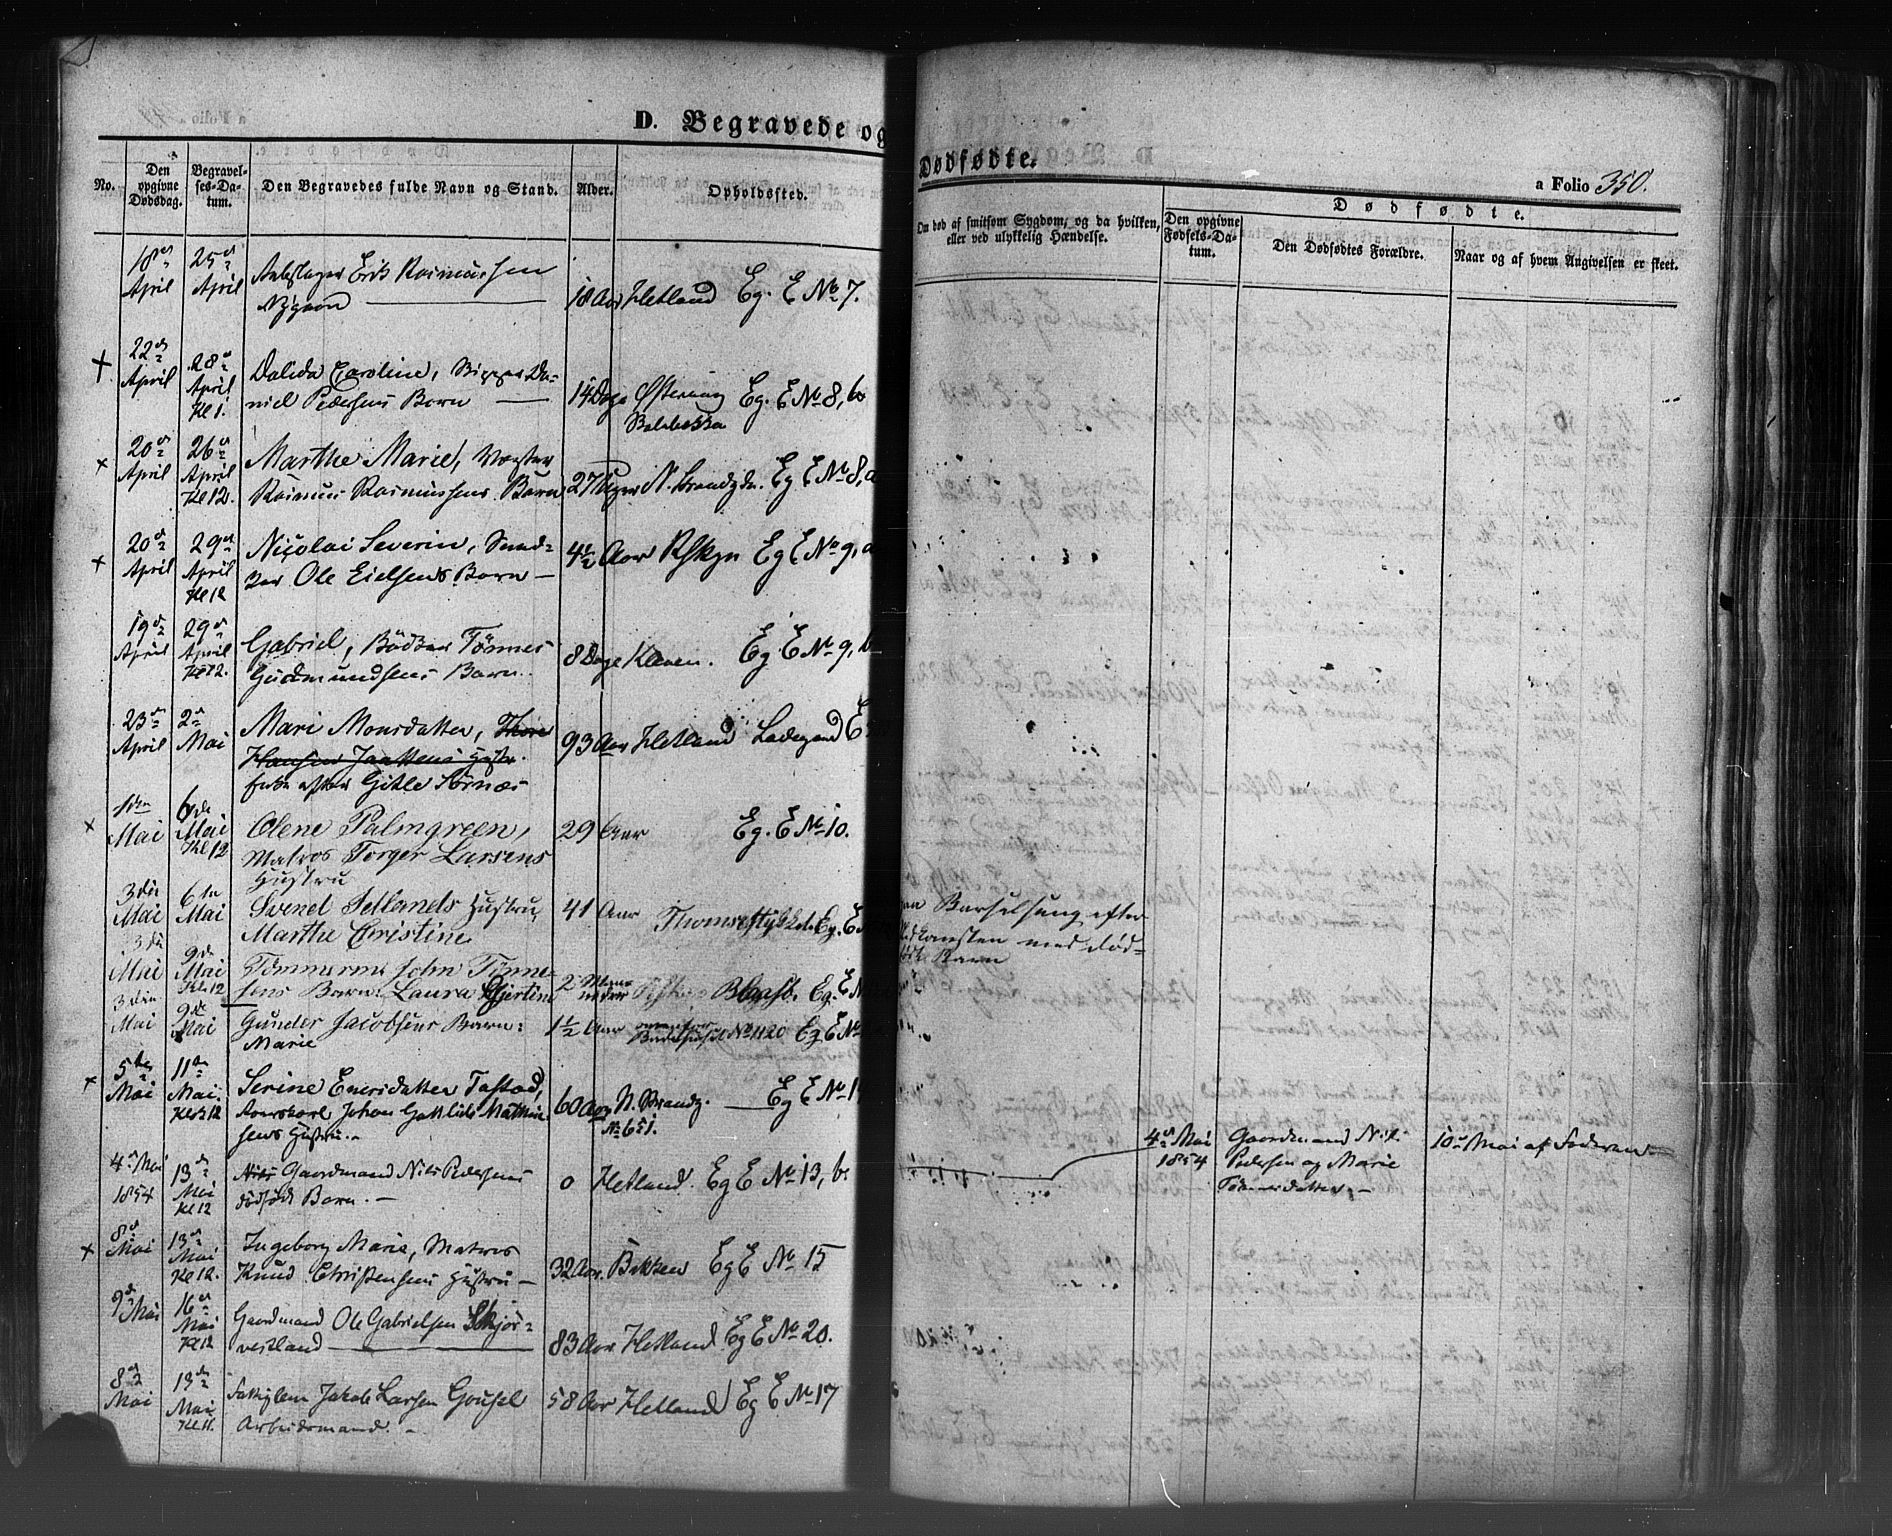 D. Begravede og
Dødfødte.
a Folio 350.
No.
Den opgivne Dødsdag.
Begravelses-Datum.
Den Begravedes fulde Navn og Stand.
Alder.
Opholdssted.
Om død af smitsom Sygdom, og da hvilken,
eller ved ulykkelig Hændelse.
Dødfødte.
Den opgivne Fødsels-Datum.
Den Dødfødtes Forældre.
Naar og af hvem Angivelsen er skeet.
18de 25de Erik Rasmussen
April April 18 Aar Hetland Eg. E No 7.
22de 28de Dalida Caroline, Da-
April April Kl 1. niel Pedersens Barn 14 Dage Østervaag Eg. E No 8, b
20de 26de Marthe Marie,
April April Kl 12. Rasmus Rasmussens Barn 27 N. Brandgd. Eg E No 8, a
20de 29de Nicolai Severin,
April April Kl 12 Ole Eielsens Barn 4½ Aar Eg E No 9, a
19de 29de Gabriel, Bødker Tønnes
April April Kl 12. Gudmundsens Barn. 8 Dage Kleven. Eg. E No 9, b
23de 2de Mari Monsdatter, Thore
April Mai Hansen Jaattens Hustr. 93 Aar Hetland Ladegaard E
Enke efter Gitle Sørnæs
1den 6de Olene Palmgreen, 29 Aar Eg. E No 10.
Mai Mai Kl 12 Matros Torger Larsens
Hustru
3die 6te Svend Setlands Hustru, 41 Aar
Mai Mai Marthe Christine Eg. E
an Barselseng efter
med død-
født Barn
3die 9de John Tønne-
Mai Mai Kl 12 sens Barn: Laura 2 Maaneder Blaasb. Eg. E
3die 9de Gunder Jacobsens Barn: 1½ Aar No 1120 Eg E No
Mai Mai Marie
5te 11te Serine Enersdatter Tastad, 60 Aar N. Brandg. Eg E No 1
Mai Mai. Kl 12 Johan Gottlieb No 651.
sens Hustru.
4de Mai 13de Nils Gaardmand Nils Pedersens
1854 Mai Kl 12 dødfødt Barn. 0 Hetland. Eg E No 13, b
4de Mai Gaardmand Nils 10de Mai af Faderen
1854 Pedersen og Marie
Tønnesdatter
8de 13de Ingeborg Marie, Matros
Mai Mai Kl 12. Knud Christensens Hustru 32 Aar. Bakken Eg E No 15
9de Mai 16de Gaardmand Ole Gabrielsen Skjøs-
Mai Kl 12 vestland 83 Aar Hetland Eg E No 20.
8de 13de Jakob Larsen Gousel 58 Aar Hetland Eg E No 17
Mai Mai Kl 11. Arbeidsmand.